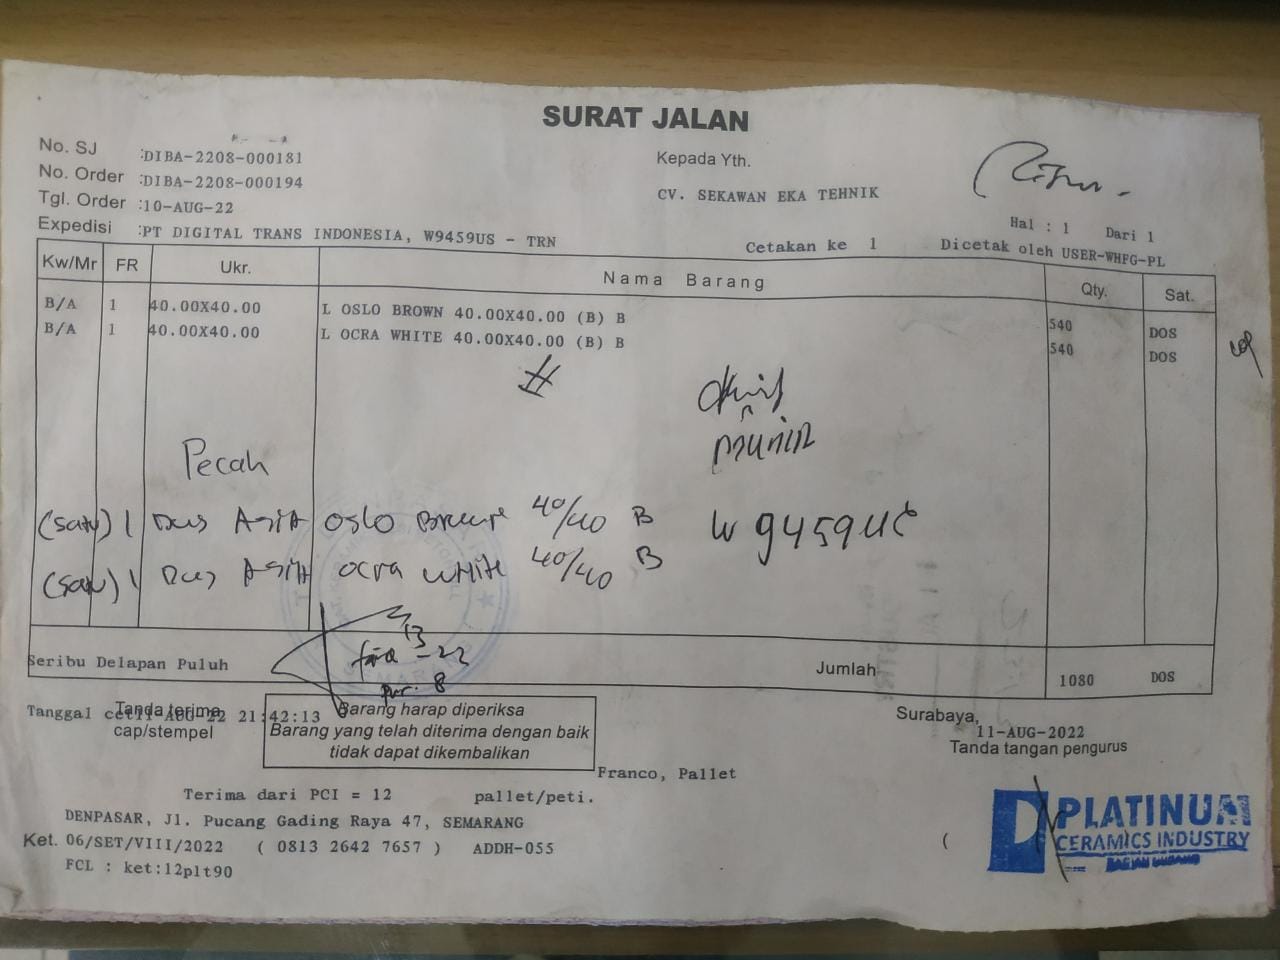 SURAT JALAN
No. SJ :DIBA-2208-000181
No. Order :DIBA-2208-000194
Tgl. Order :10-AUG-22
Expedisi :PT DIGITAL TRANS INDONESIA, W9459US - TRN
Kepada Yth.
CV. SEKAWAN EKA TEHNIK
Hal : 1 Dari 1
Cetakan ke 1 Dicetak oleh USER-WHFG-PL
Kw/Mr FR Ukr. Nama Barang Qty. Sat.
B/A 1 40.00X40.00 L OSLO BROWN 40.00X40.00 (B) B 540 DOS
B/A 1 40.00X40.00 L OCRA WHITE 40.00X40.00 (B) B 540 DOS
munir
Pecah
(satu) 1 Dus oslo 40/40 B
W 9459 US
(satu) 1 Dus ocra white 40/40 B
13
-22
8
Seribu Delapan Puluh Jumlah 1080 DOS
Tanggal cet11-AUG-22 21:42:13
Tanda terima
cap/stempel
Barang harap diperiksa
Barang yang telah diterima dengan baik
tidak dapat dikembalikan
Surabaya, 11-AUG-2022
Tanda tangan pengurus
Franco, Pallet
Terima dari PCI = 12 pallet/peti.
DENPASAR, Jl. Pucang Gading Raya 47, SEMARANG
Ket. 06/SET/VIII/2022 ( 0813 2642 7657 ) ADDH-055
FCL : ket:12plt90
(
PLATINUM
CERAMICS INDUSTRY